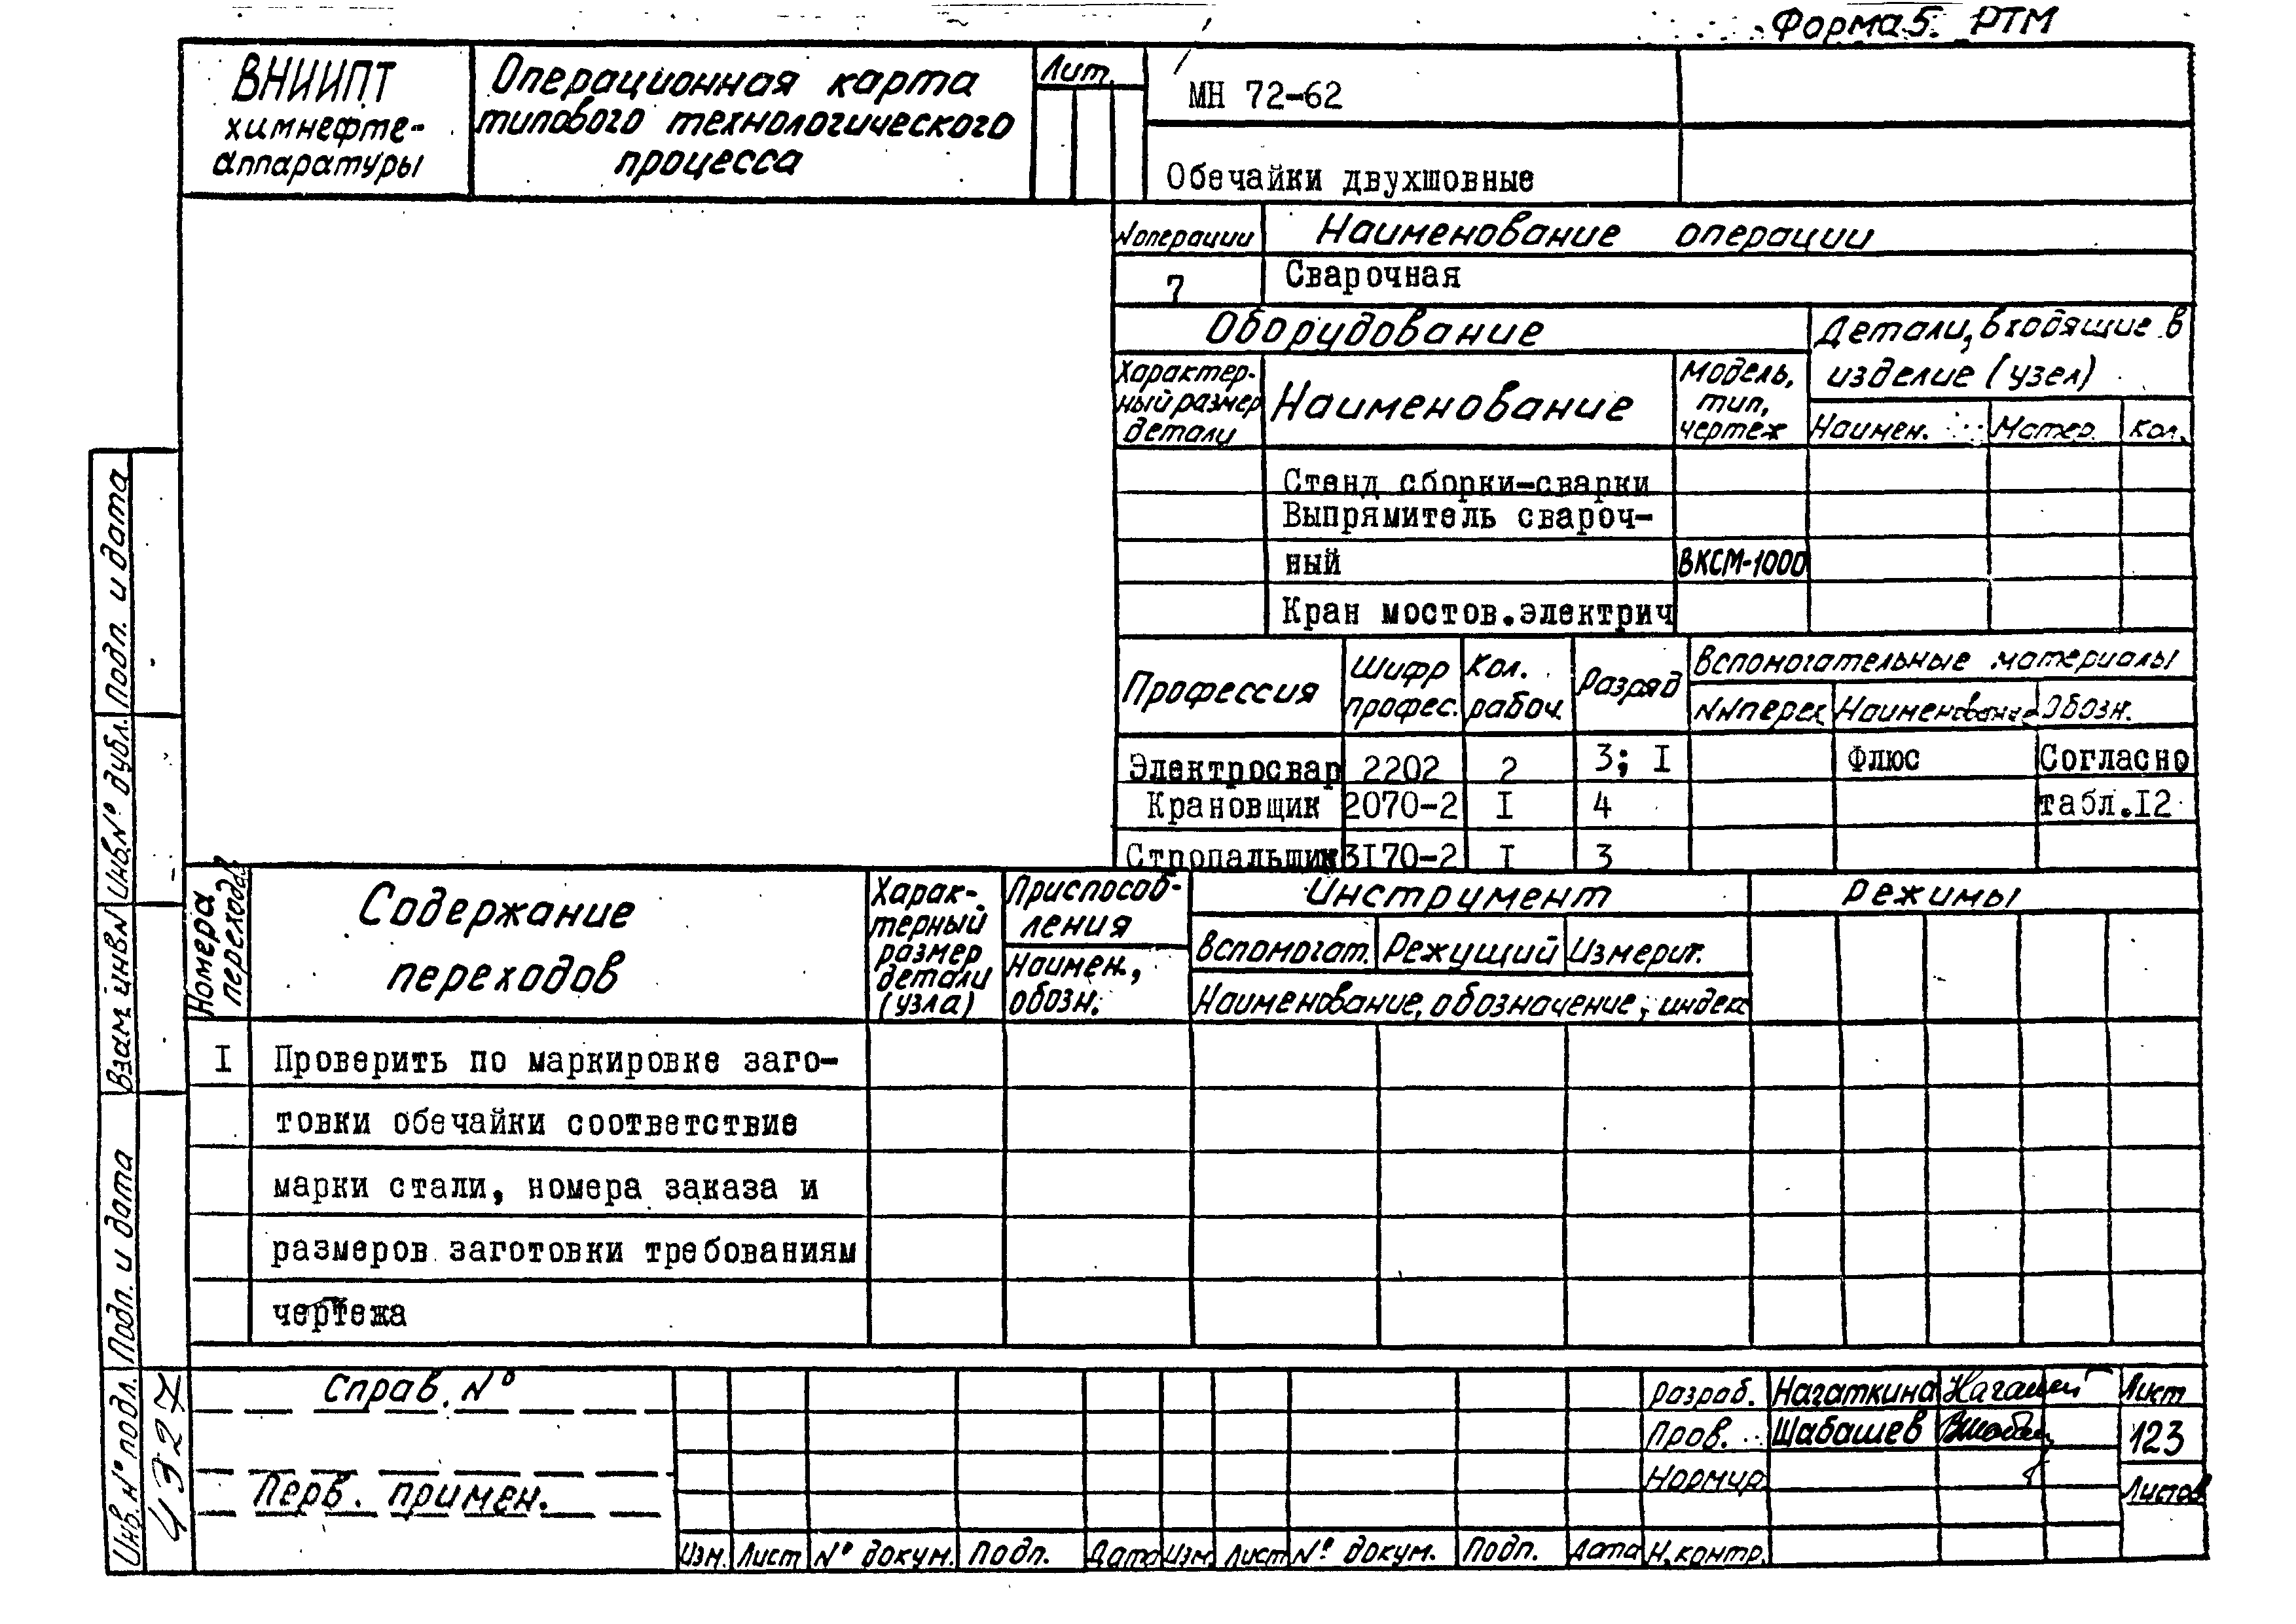 Форма 5. РТМ
ВНИИПТ
химнефте-
аппаратуры
Операционная карта
типового технологического
процесса
Лит.
МН 72-62
Обечайки двухшовные
№ операции
Наименование операции
7
Сварочная
Оборудование
Детали, входящие в
изделие (узел)
Характер-
ный размер
детали
Наименование
Модель,
тип,
чертеж
Наимен.
Матер.
Кол.
Стенд сборки-сварки
Выпрямитель свароч-
ный
ВКСМ-1000
Кран мостов.электрич
Профессия
Шифр
профес.
Кол.
рабоч.
Разряд
Вспомогательные материалы
№№перех
Наименование
Обозн.
Электросвар 2202 2 3; I Флюс Согласно
Крановщик 2070-2 I 4 табл.I2
Стропальщик 3I70-2 I 3
Номера
переходов
Содержание
переходов
Харак-
терный
размер
детали
(узла)
Приспособ-
ления
Наимен.,
обозн.
Инструмент
Вспомогат. Режущий Измерит.
Наименование, обозначение, индекс
Режимы
I Проверить по маркировке заго-
товки обечайки соответствие
марки стали, номера заказа и
размеров заготовки требованиям
чертежа
Справ. №
Перв. примен.
Изм. Лист № докум. Подп. Дата Изм. Лист № докум. Подп. Дата
Разраб. Нагаткина
Пров. Шабашев
Нормир.
Н.контр.
Лист
123
Листов
Подп. и дата
Инв.№ дубл.
Взам. инв №
Подп. и дата
Инв. № подл.
4327